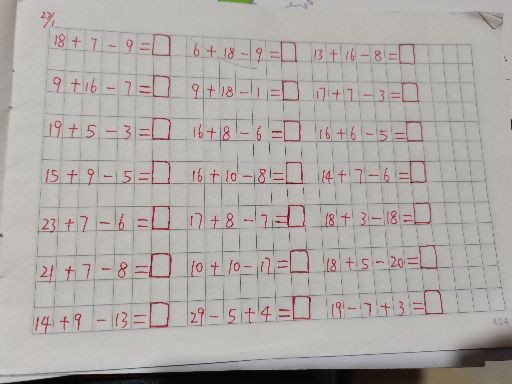 27/1
18 + 7 - 9 = □ 6 + 18 - 9 = □ 13 + 16 - 8 = □
9 + 16 - 7 = □ 9 + 18 - 1 = □ 17 + 7 - 3 = □
19 + 5 - 3 = □ 16 + 8 - 6 = □ 16 + 6 - 5 = □
15 + 9 - 5 = □ 16 + 10 - 8 = □ 14 + 7 - 6 = □
23 + 7 - 6 = □ 17 + 8 - 7 = □ 18 + 3 - 18 = □
21 + 7 - 8 = □ 10 + 10 - 17 = □ 18 + 5 - 20 = □
14 + 9 - 13 = □ 29 - 5 + 4 = □ 19 - 7 + 3 = □